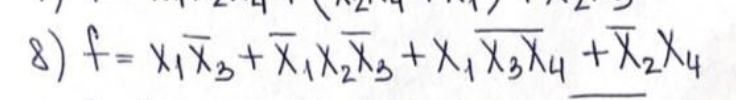 8) f = x₁x̅₃ + x̅₁x₂x̅₃ + x₁ x̅₃x̅₄ + x̅₂x₄